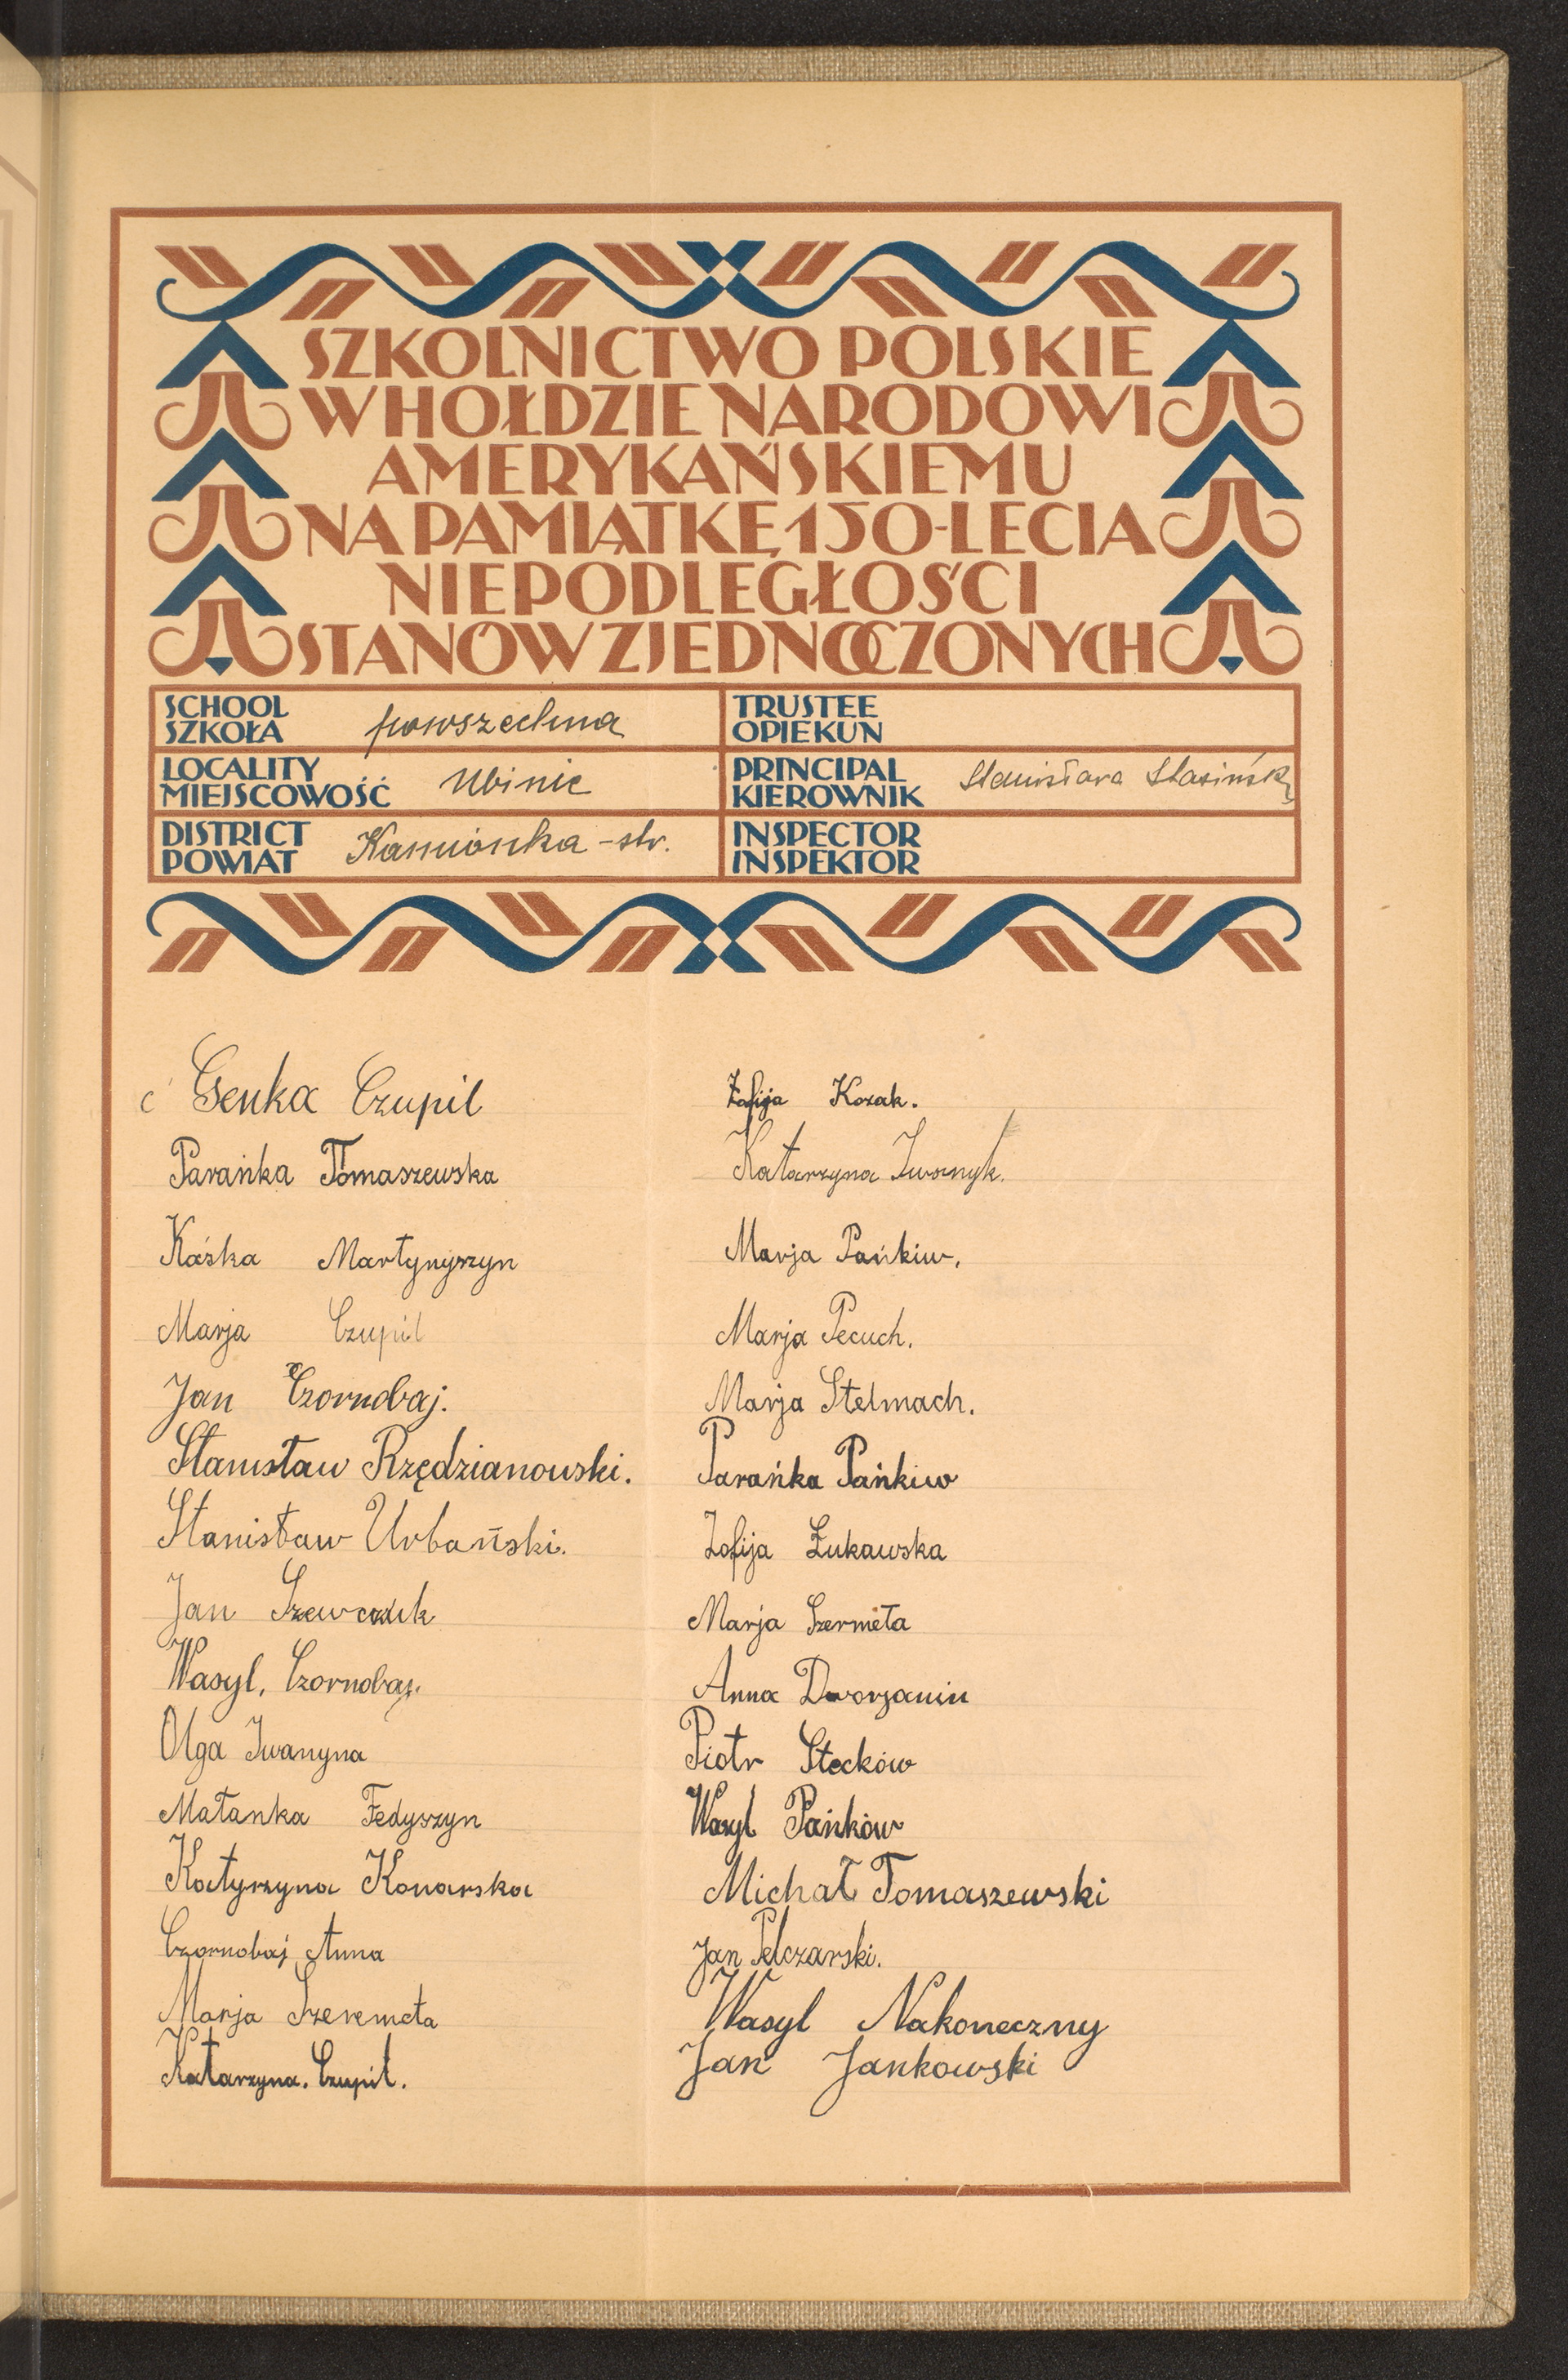 SZKOLNICTWO POLSKIE
W HOŁDZIE NARODOWI
AMERYKAŃSKIEMU
NA PAMIĄTKĘ 150-LECIA
NIEPODLEGŁOŚCI
STANÓW ZJEDNOCZONYCH
SCHOOL
SZKOŁA powszechna
TRUSTEE
OPIEKUN
LOCALITY
MIEJSCOWOŚĆ Ubinie
PRINCIPAL
KIEROWNIK Stanisława
DISTRICT
POWIAT Kamionka - str.
INSPECTOR
INSPEKTOR
Genka Czupil
Parańka Tomaszewska
Kaśka Martynyszyn
Marja Czupil
Jan Czornobaj.
Stanisław Rzędzianowski.
Stanisław Urbański.
Jan Szewczuk
Wasyl. Czornobaj.
Olga Iwanyna
Małanka Fedyszyn
Katyrzyna Konarska
Czornobaj Anna
Marja Szeremeta
Katarzyna. Czupil.
Zofija Kozak.
Katarzyna
Marja Pańkiw.
Marja Pecuch.
Marja Stelmach.
Parańka Pańkiw
Zofija Łukawska
Marja Szermeta
Anna Dworzanin
Piotr Steckow
Wasyl Pańków
Michał Tomaszewski
Jan Pelczarski.
Wasyl Nakoneczny
Jan Jankowski